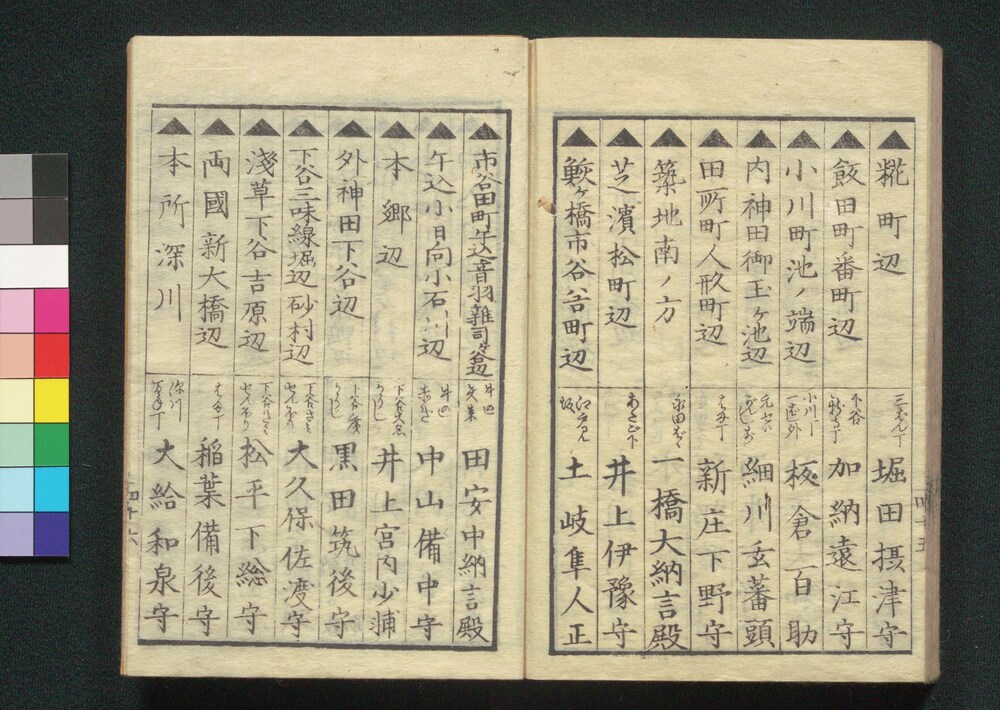 糀町辺
三ばん丁
堀田摂津守
飯田町番町辺
下谷
加納遠江守
小川町池ノ端辺
小川丁
一ばし外
板倉百助
内神田御玉ヶ池辺
細川玄蕃頭
田所町人形町辺
新庄下野守
築地南ノ方
一橋大納言殿
芝濱松町辺
あたご下
井上伊豫守
鮫ヶ橋市谷谷町辺
江戸見
坂
土岐隼人正
四十五
市谷田町牛込音羽雜司ヶ谷辺
田安中納言殿
牛込小日向小石川辺
中山備中守
本郷辺
井上宮内少輔
外神田下谷辺
黒田筑後守
下谷三味線堀辺砂村辺
大久保佐渡守
淺草下谷吉原辺
松平下総守
両國新大橋辺
稲葉備後守
本所深川
深川
大給和泉守
四十六